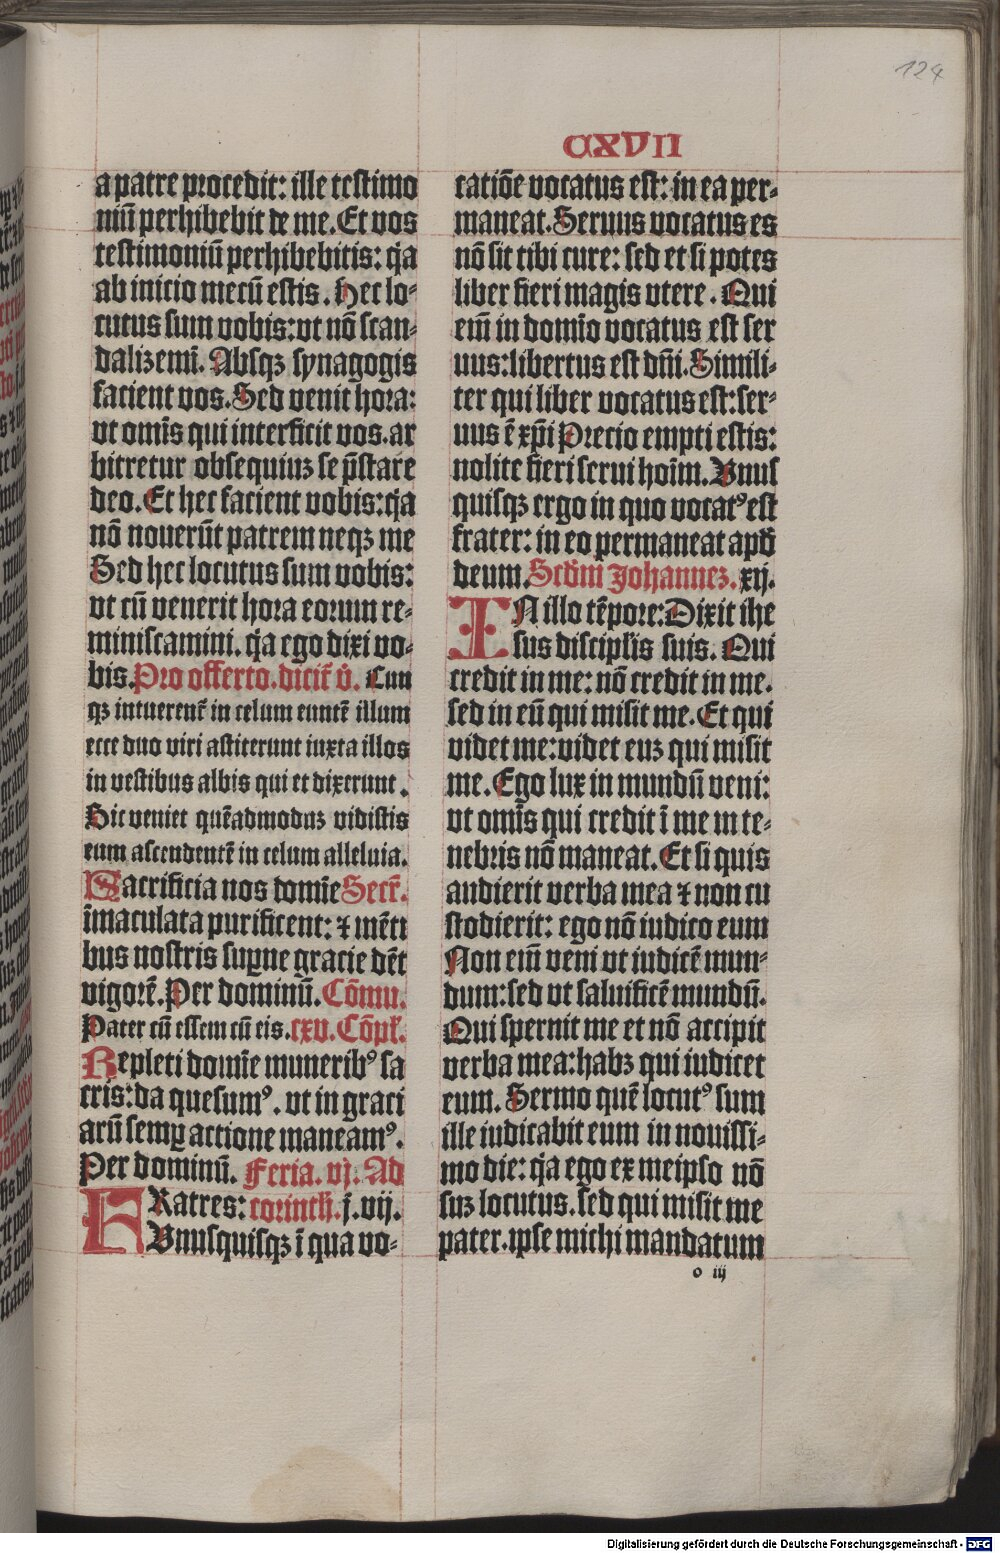 124
CXVII
a patre procedit: ille testimo
niū perhibebit de me. Et vos
testimoniū perhibebitis: q̄a
ab inicio mecū estis. Hec lo-
cutus sum vobis: vt nō scan-
dalizemī. Absqꝫ synagogis
facient vos. Sed venit hora:
vt omīs qui interficit vos. ar
bitretur obsequiuꝫ se p̄stare
deo. Et hec facient vobis: q̄a
nō nouerūt patrem neqꝫ me
Sed hec locutus sum vobis:
vt cū venerit hora eorum re-
miniscamini. q̄a ego dixi vo-
bis. Pro offerto. dicit̄ v̄. Cun
qꝫ intuerent̄ in celum euntē illum
ecce duo viri astiterunt iuxta illos
in vestibus albis qui et dixerunt.
Hic veniet quēadmoduꝫ vidistis
eum ascendentē in celum alleluia.
Sacrificia nos domīe Secr̄.
īmaculata purificent: ⁊ mēti
bus nostris suꝑne gracie dēt
vigorē. Per dominū. Cōmu.
Pater cū essem cū eis. cxv. Cōpl̄.
Repleti domīe muneribꝰ sa
cris: da quesumꝰ. vt in graci
arū semꝑ actione maneamꝰ.
Per dominū. Feria. vj. Ad
FRatres: corinth̄. j. vij.
Vnusquisqꝫ ī qua vo-
catiōe vocatus est: in ea per-
maneat. Seruus vocatus es
nō sit tibi cure: sed et si potes
liber fieri magis vtere. Qui
eīn in domīo vocatus est ser
uus: libertus est dn̄i. Simili-
ter qui liber vocatus est: ser-
uus ē xp̄i Precio empti estis:
nolite fieri serui hoīm. Vnus
quisqꝫ ergo in quo vocatꝰ est
frater: in eo permaneat apd̄
deum. Scdm̄ Johanneꝫ. xij.
IN illo tēpore: Dixit ihe
sus disciplīs suis. Qui
credit in me: nō credit in me.
sed in eū qui misit me. Et qui
videt me: videt euꝫ qui misit
me. Ego lux in mundū veni:
vt omīs qui credit ī me in te-
nebris nō maneat. Et si quis
audierit verba mea ⁊ non cu
stodierit: ego nō iudico eum
Non eīn veni vt iudicē mun-
dum: sed vt saluificē mundū.
Qui spernit me et nō accipit
verba mea: habꝫ qui iudicet
eum. Sermo quē locutꝰ sum
ille iudicabit eum in nouissi-
mo die: q̄a ego ex meipso nō
suꝫ locutus. sed qui misit me
pater. ipse michi mandatum
o iij
Digitalisierung gefördert durch die Deutsche Forschungsgemeinschaft - DFG